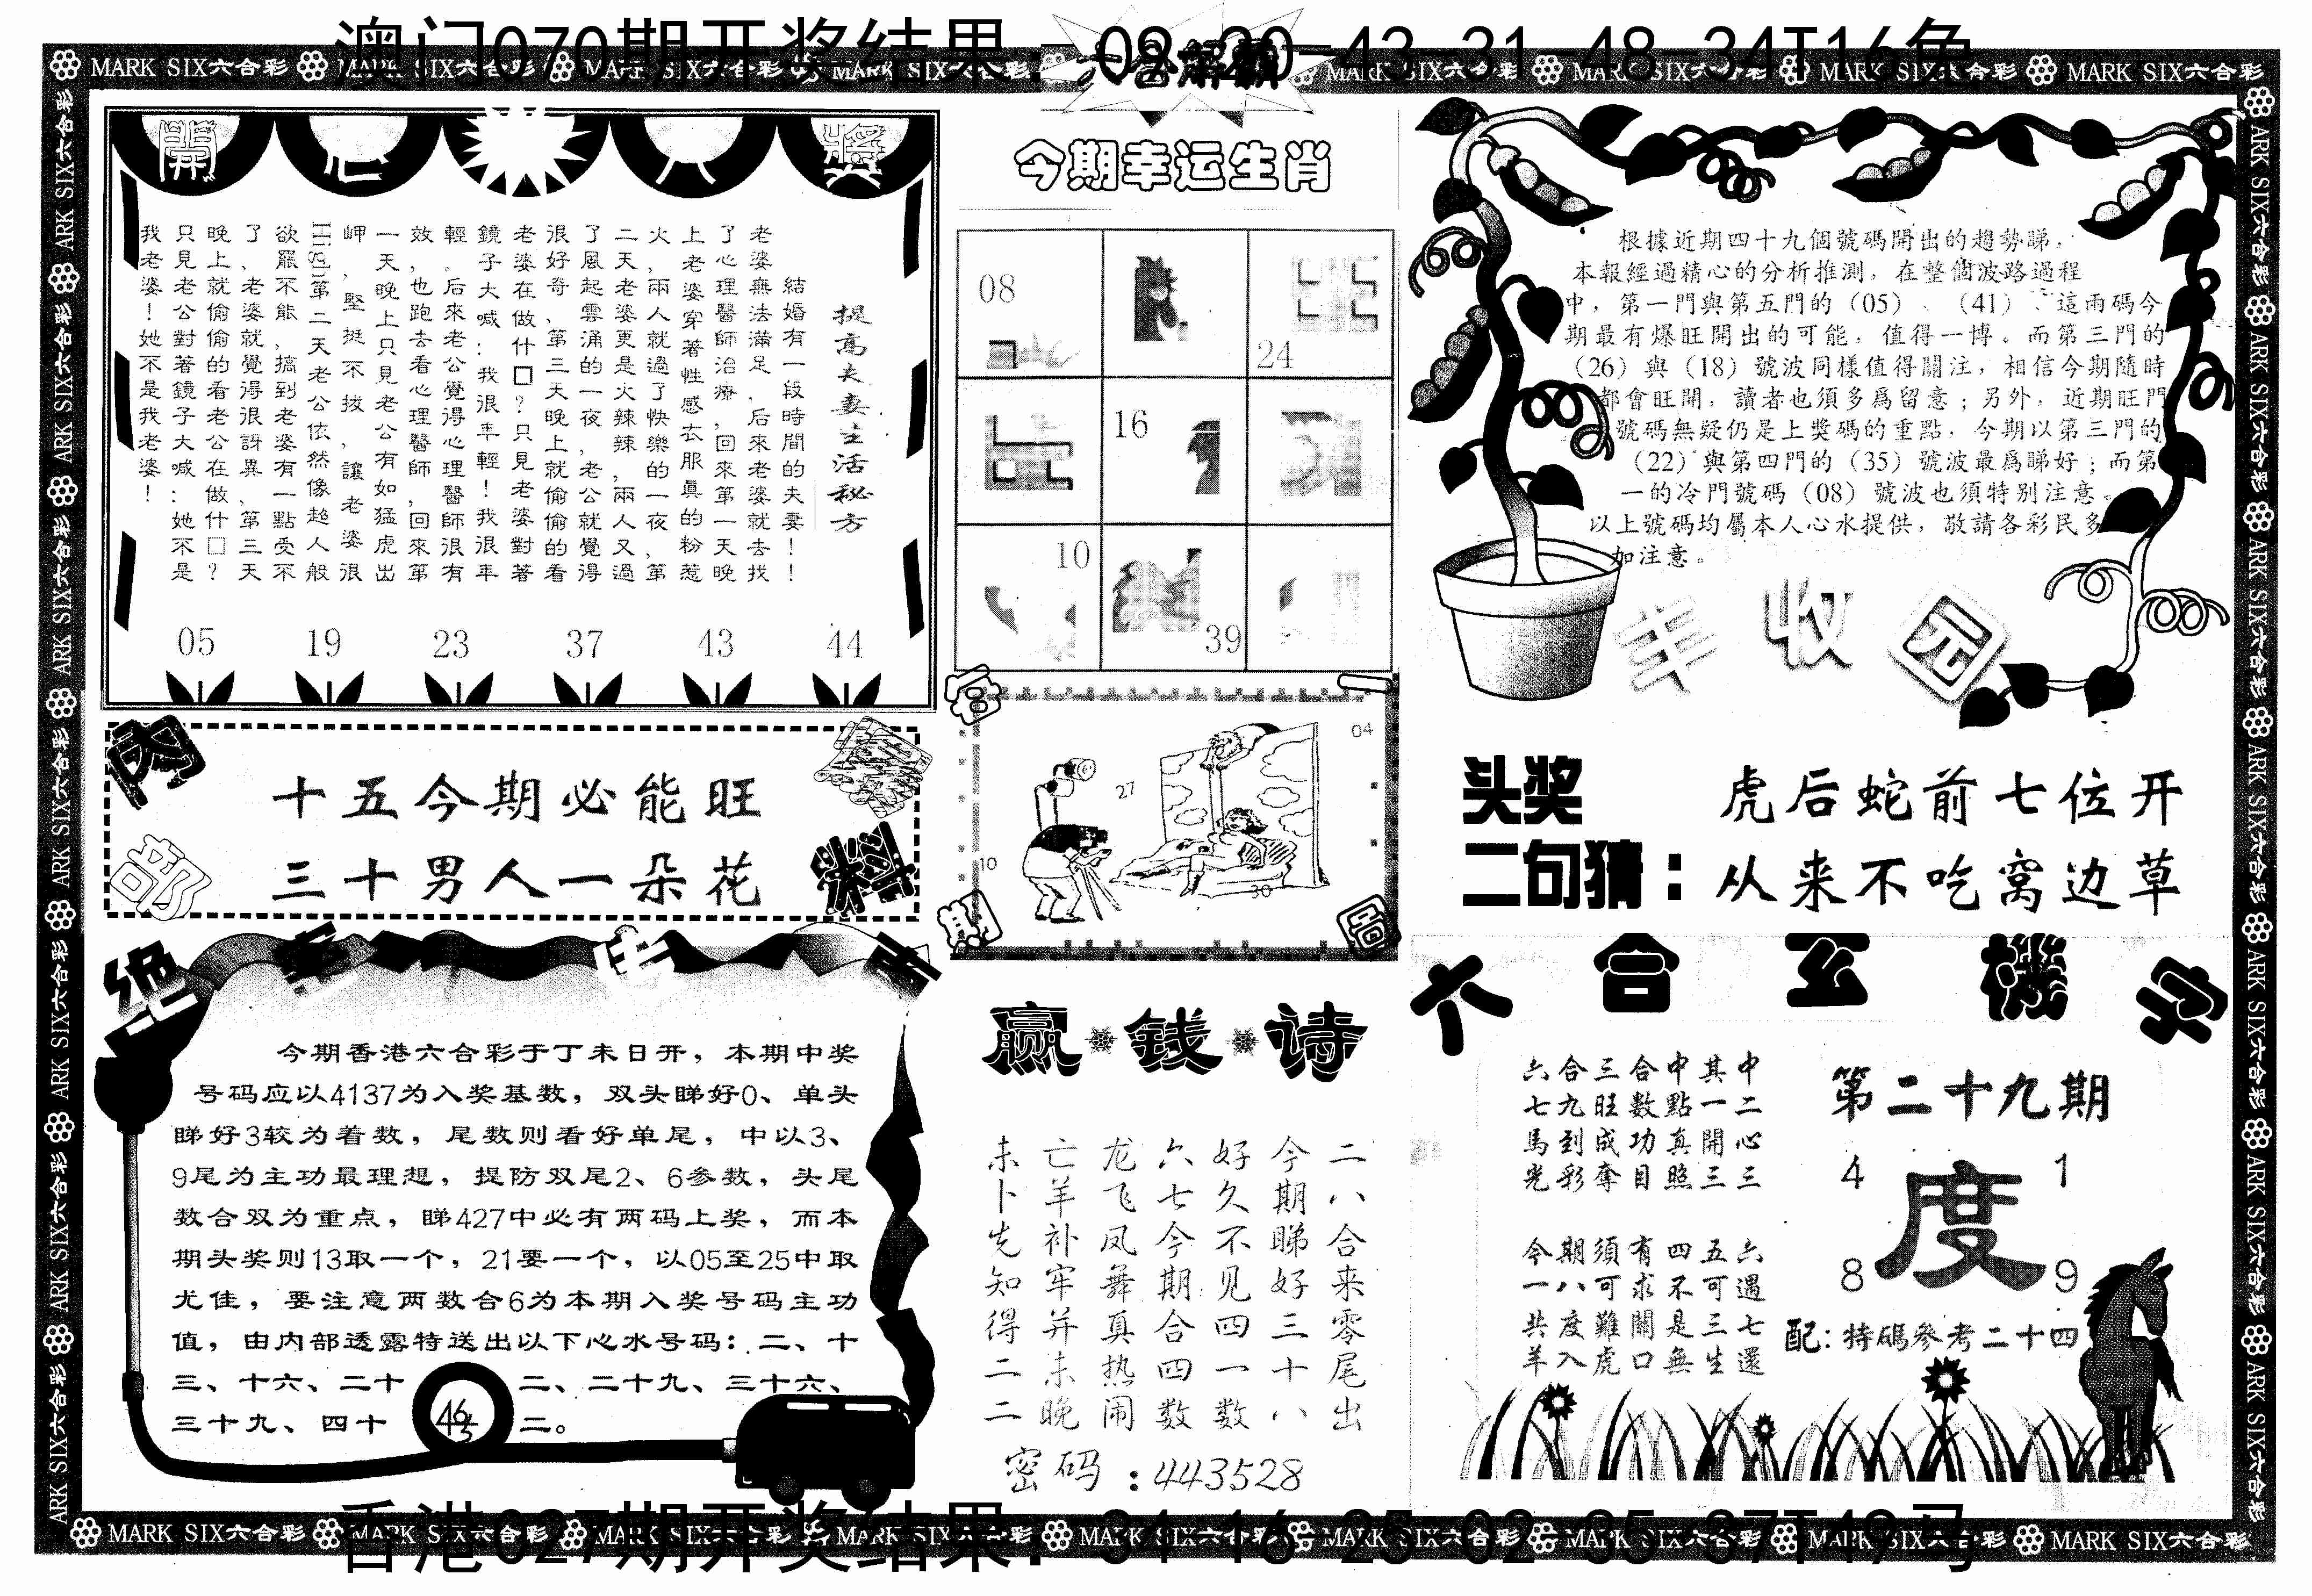 澳门070期开奖结果：08-20-43-31-48-34T16兔
MARK SIX六合彩
六合解霸
開
獎
提高夫妻生活秘方
結婚有一段時間的夫妻！
老婆無法滿足，后來老婆就去找
了心理醫師治療，回來第一天晚
上老婆穿著性感衣服真的粉惹
火，兩人就過了快樂的一夜、第
二天老婆更是火辣辣，兩人又過
了風起雲涌的一夜，老公就覺得
很好奇、第三天晚上就偷偷的看
老婆在做什□？只見老婆對著
鏡子大喊：我很年輕！我很年
輕。后來老公覺得心理醫師很有
效，也跑去看心理醫師，回來第
一天晚上只見老公有如猛虎出
岬，堅挺不拔，讓老婆很
High第二天老公依然像超人般
欲羅不能，搞到老婆有一點受不
了，老婆就覺得很訝異、第三天
晚上就偷偷的看老公在做什□？
只見老公對著鏡子大喊：她不是
我老婆！她不是我老婆！
05 19 23 37 43 44
今期幸运生肖
08
24
16
10
39
根據近期四十九個號碼開出的趨勢睇，
本報經過精心的分析推測，在整個波路過程
中，第一門與第五門的（05）、（41）、這兩碼今
期最有爆旺開出的可能，值得一博。而第三門的
（26）與（18）號波同樣值得關注，相信今期隨時
都會旺開，讀者也須多爲留意；另外，近期旺門
號碼無疑仍是上獎碼的重點，今期以第三門的
（22）與第四門的（35）號波最爲睇好；而第
一的冷門號碼（08）號波也須特别注意。
以上號碼均屬本人心水提供，敬請各彩民多
如注意。
收
元
内
部
料
十五今期必能旺
三十男人一朵花
04
27
10
30
头奖
二句猜：
虎后蛇前七位开
从来不吃窝边草
绝
今期香港六合彩于丁未日开，本期中奖
号码应以4137为入奖基数，双头睇好0、单头
睇好3较为着数，尾数则看好单尾，中以3、
9尾为主功最理想，提防双尾2、6参数，头尾
数合双为重点，睇427中必有两码上奖，而本
期头奖则13取一个，21要一个，以05至25中取
尤佳，要注意两数合6为本期入奖号码主功
值，由内部透露特送出以下心水号码：二、十
三、十六、二十二、二十九、三十六、
三十九、四十二。
赢钱诗
二八合来零尾出
今期睇好三十八
好久不见四一数
六七今期合四数
龙飞凤舞真热闹
亡羊补牢并未晚
未卜先知得二二
密码：443528
六合玄機字
六合三合中其中
七九旺數點一二
馬到成功真開心
光彩奪目照三三
今期須有四五六
一八可求不可遇
共度難關是三七
羊入虎口無生還
第二十九期
4 1
度
8 9
配：特碼參考二十四
香港027期开奖结果：34-16-25-02-35-37T49马
MARK SIX六合彩